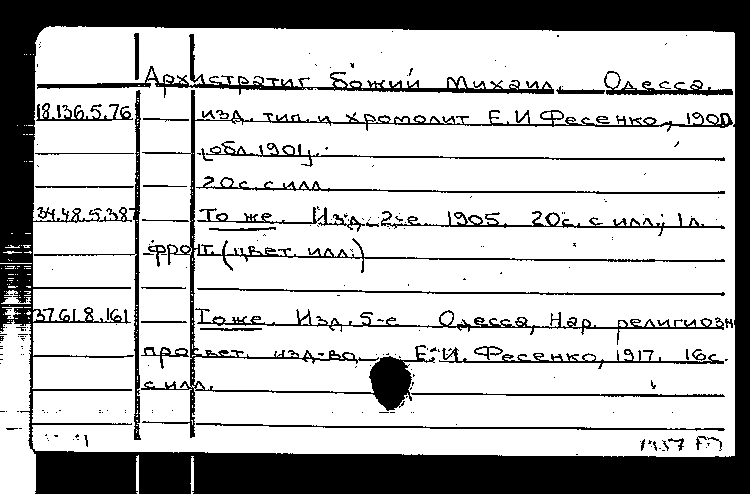 Архистратиг Божий Михаил. Одесса.
18.136.5.76 изд. тип. и хромолит Е.И Фесенко, 1900
[обл. 1901].
20с. с илл.
34.48.5.387 То же. Изд. 2-е. 1905. 20с. с илл.; 1л.
фронт. (цвет. илл.)
37.61.8.161 То же. Изд. 5-е Одесса, Нар. религиозн
просвет. изд-во Е.И. Фесенко, 1917. 16с.
с илл.